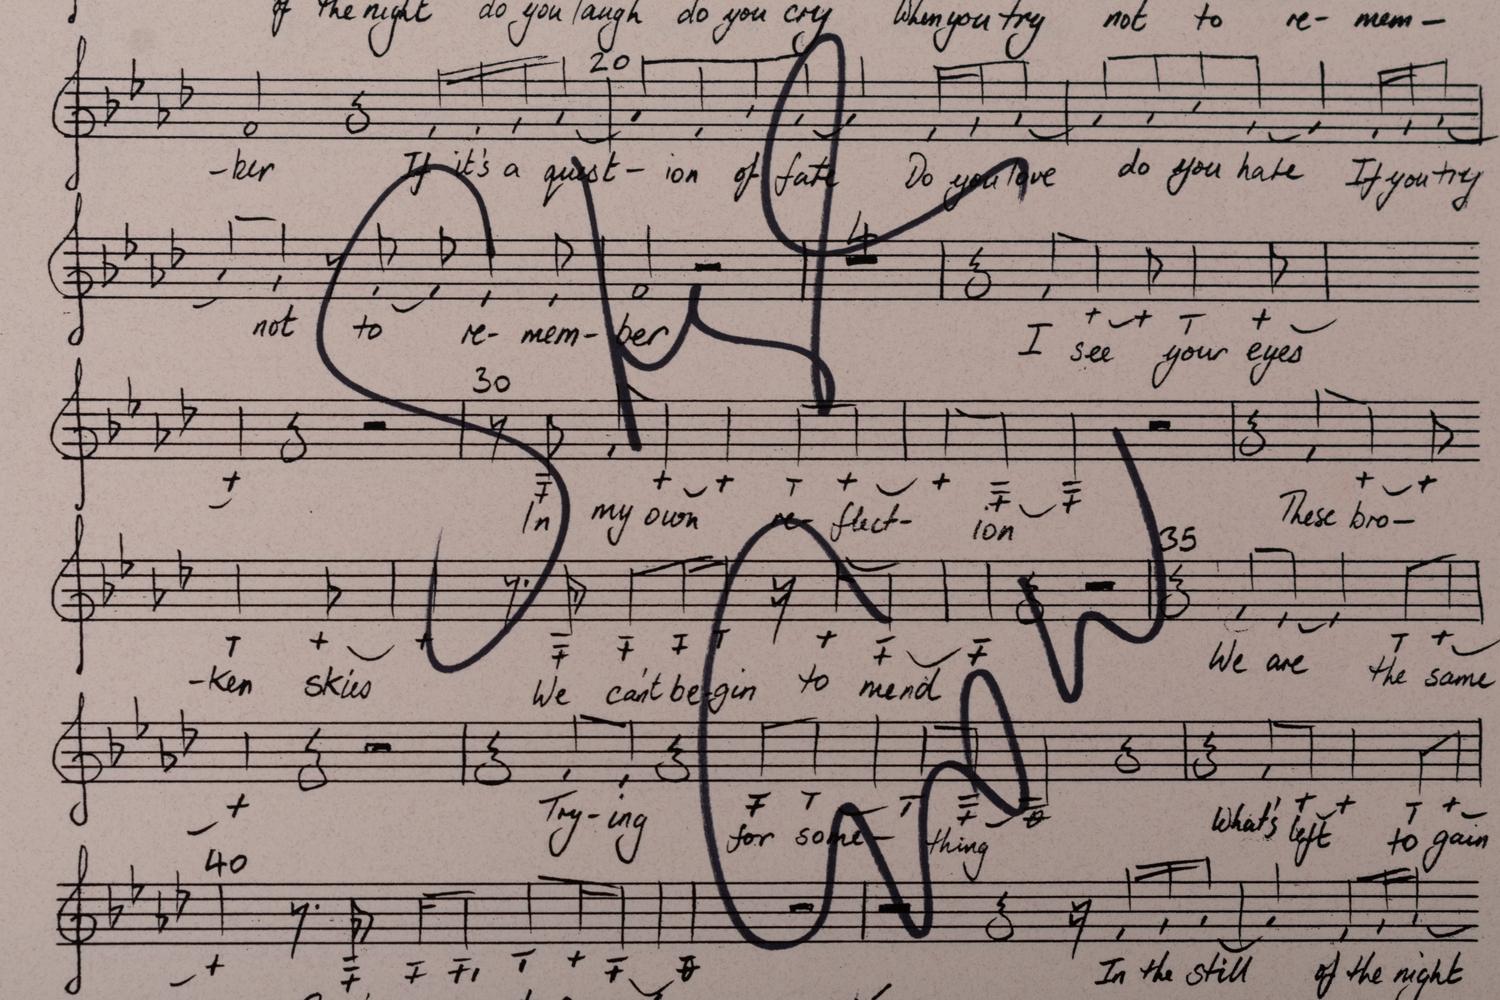 of the night do you laugh do you cry When you try not to re- mem-
20
-ber If it's a quest- ion of fate Do you love do you hate If you try
4
not to re- mem- ber I see your eyes
30
In my own re- flect- ion These bro-
35
-ken skies We can't be-gin to mend We are the same
Try-ing for some- thing What's left to gain
40
In the still of the night